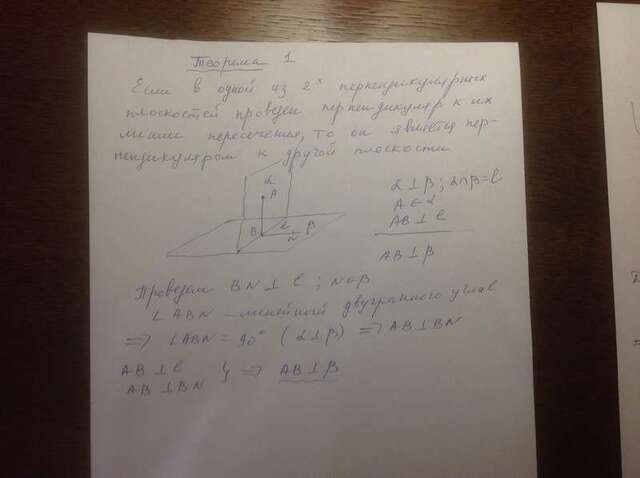 Теорема 1
Если в одной из 2ˣ перпендикулярных
плоскостей проведен перпендикуляр к их
линии пересечения, то он является пер-
пендикуляром к другой плоскости
α
A
B
l
β
N
α ⊥ β ; α∩β=l
A ∈ α
AB ⊥ l
AB ⊥ β
Проведем BN ⊥ l ; N∈β
∠ ABN – линейный двугранного угла
=> ∠ABN = 90° (α⊥β) => AB⊥BN
AB ⊥ l
AB ⊥ BN } => AB⊥β